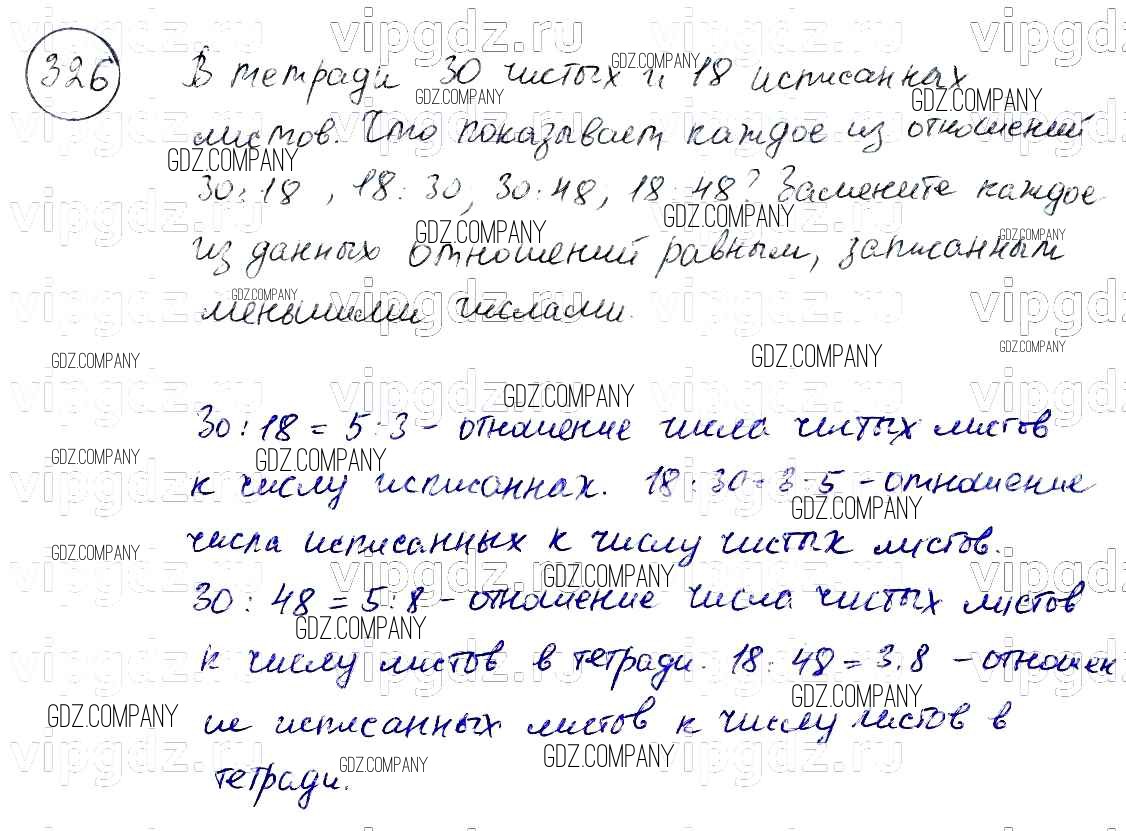 326
В тетради 30 чистых и 18 исписаннах
листов. Что показывает каждое из отношений
30:18, 18:30, 30:48, 18:48? Замените каждое
из данных отношений равным, записанным
меньшими числами.
30:18=5:3- отношение числа чистых листов
к числу исписаннах. 18:30=3:5-отношение
числа исписанных к числу чистых листов.
30:48=5:8-отношение числа чистых листов
к числу листов в тетради. 18:48=3:8 -отношен
ие исписанных листов к числу листов в
тетради.
vipgdz.ru
GDZ.COMPANY